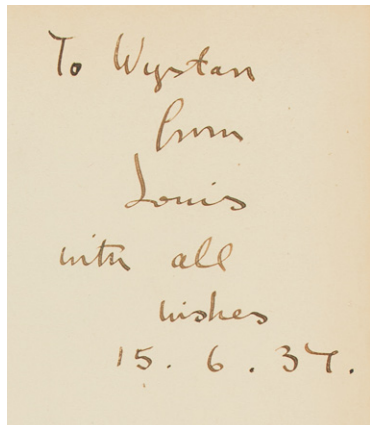 To Wystan
from
Louis
with all
wishes
15. 6. 37.